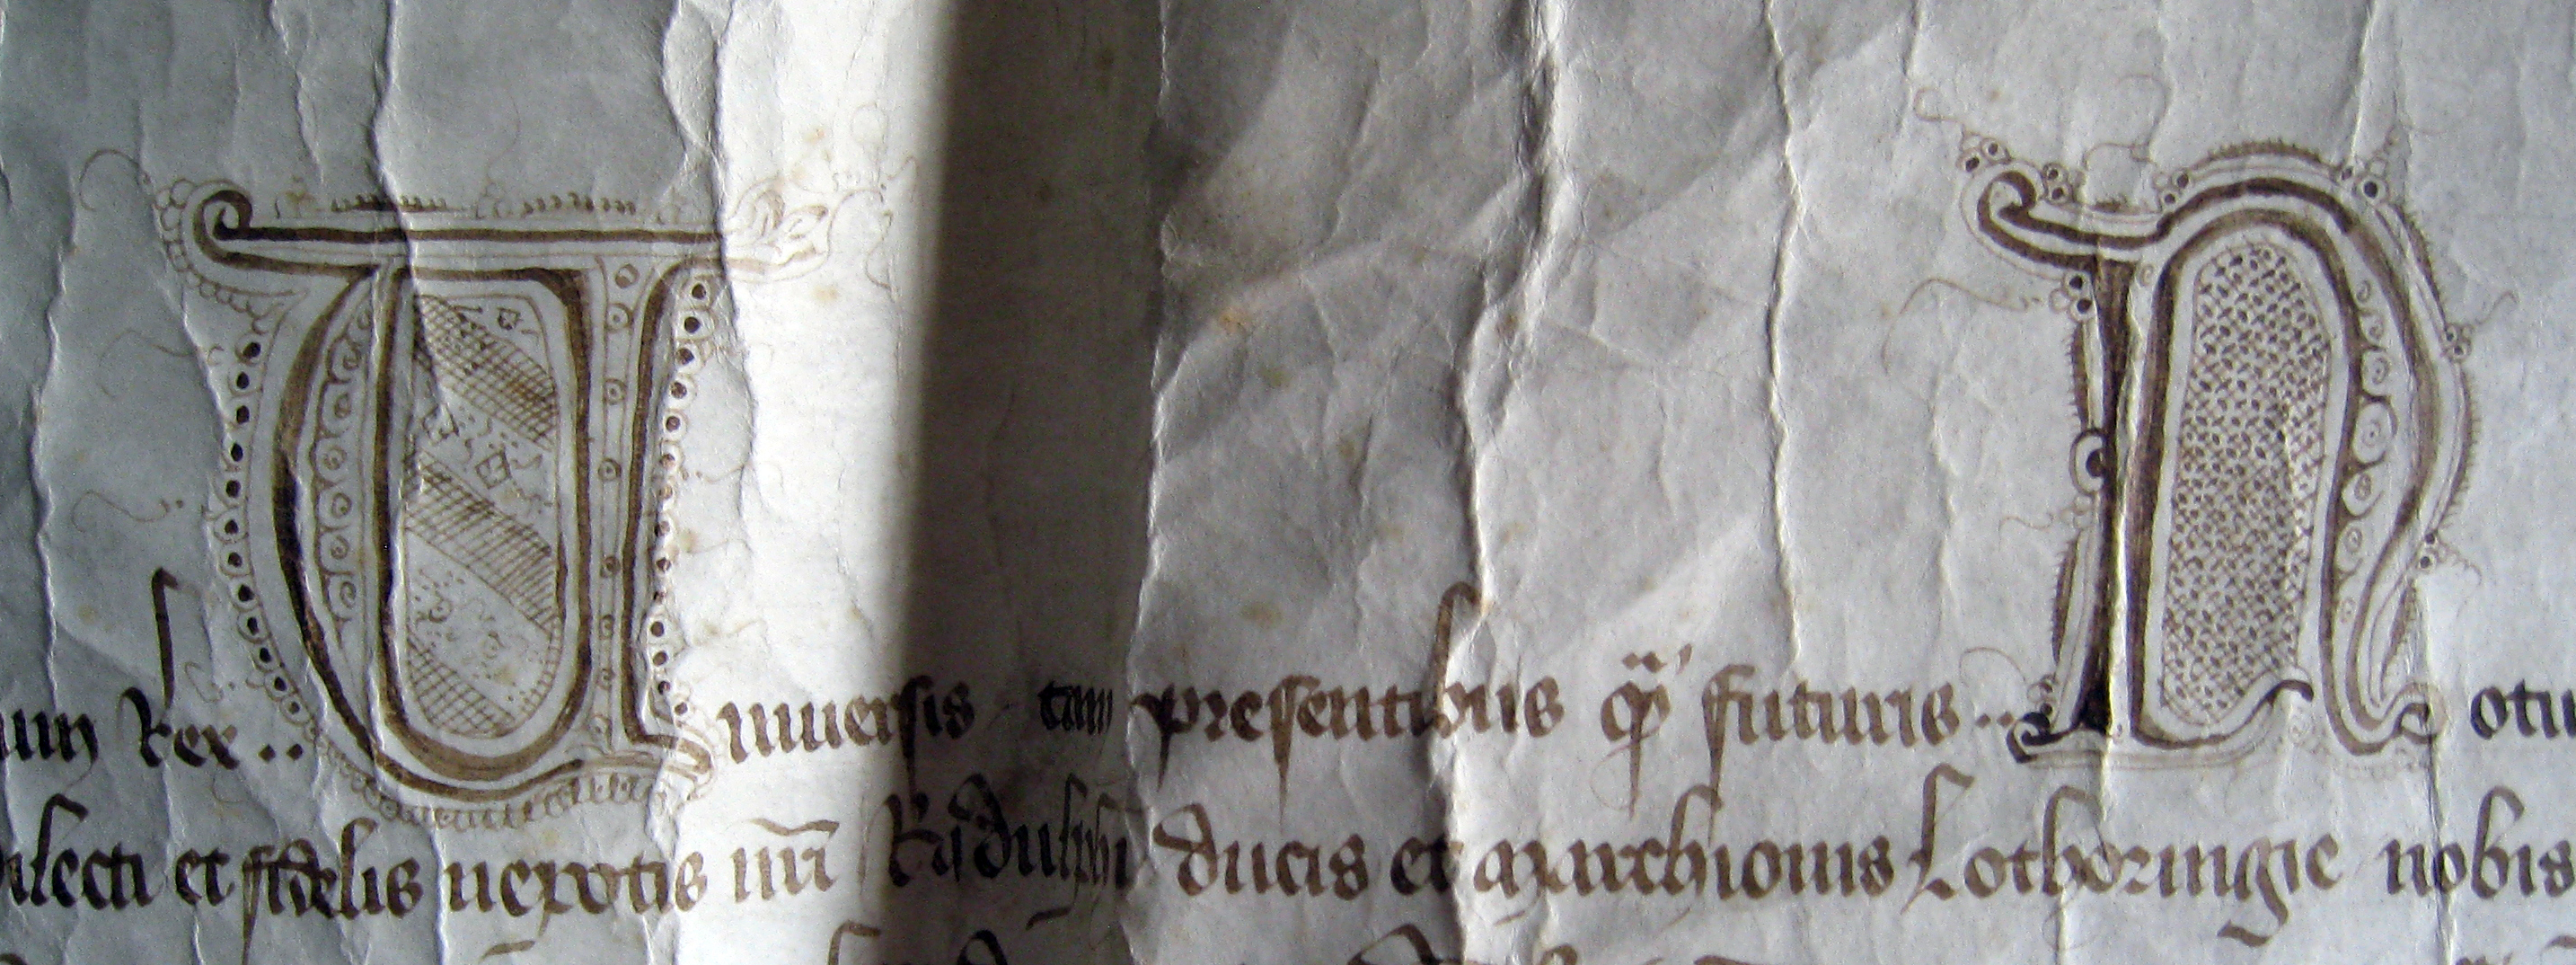 Rex.. Uniuersis tam presentibus qͣ futuris.. Notu
et fidelis nepotis nrī Radulphi ducis et Marchionis Lothoringie nobis